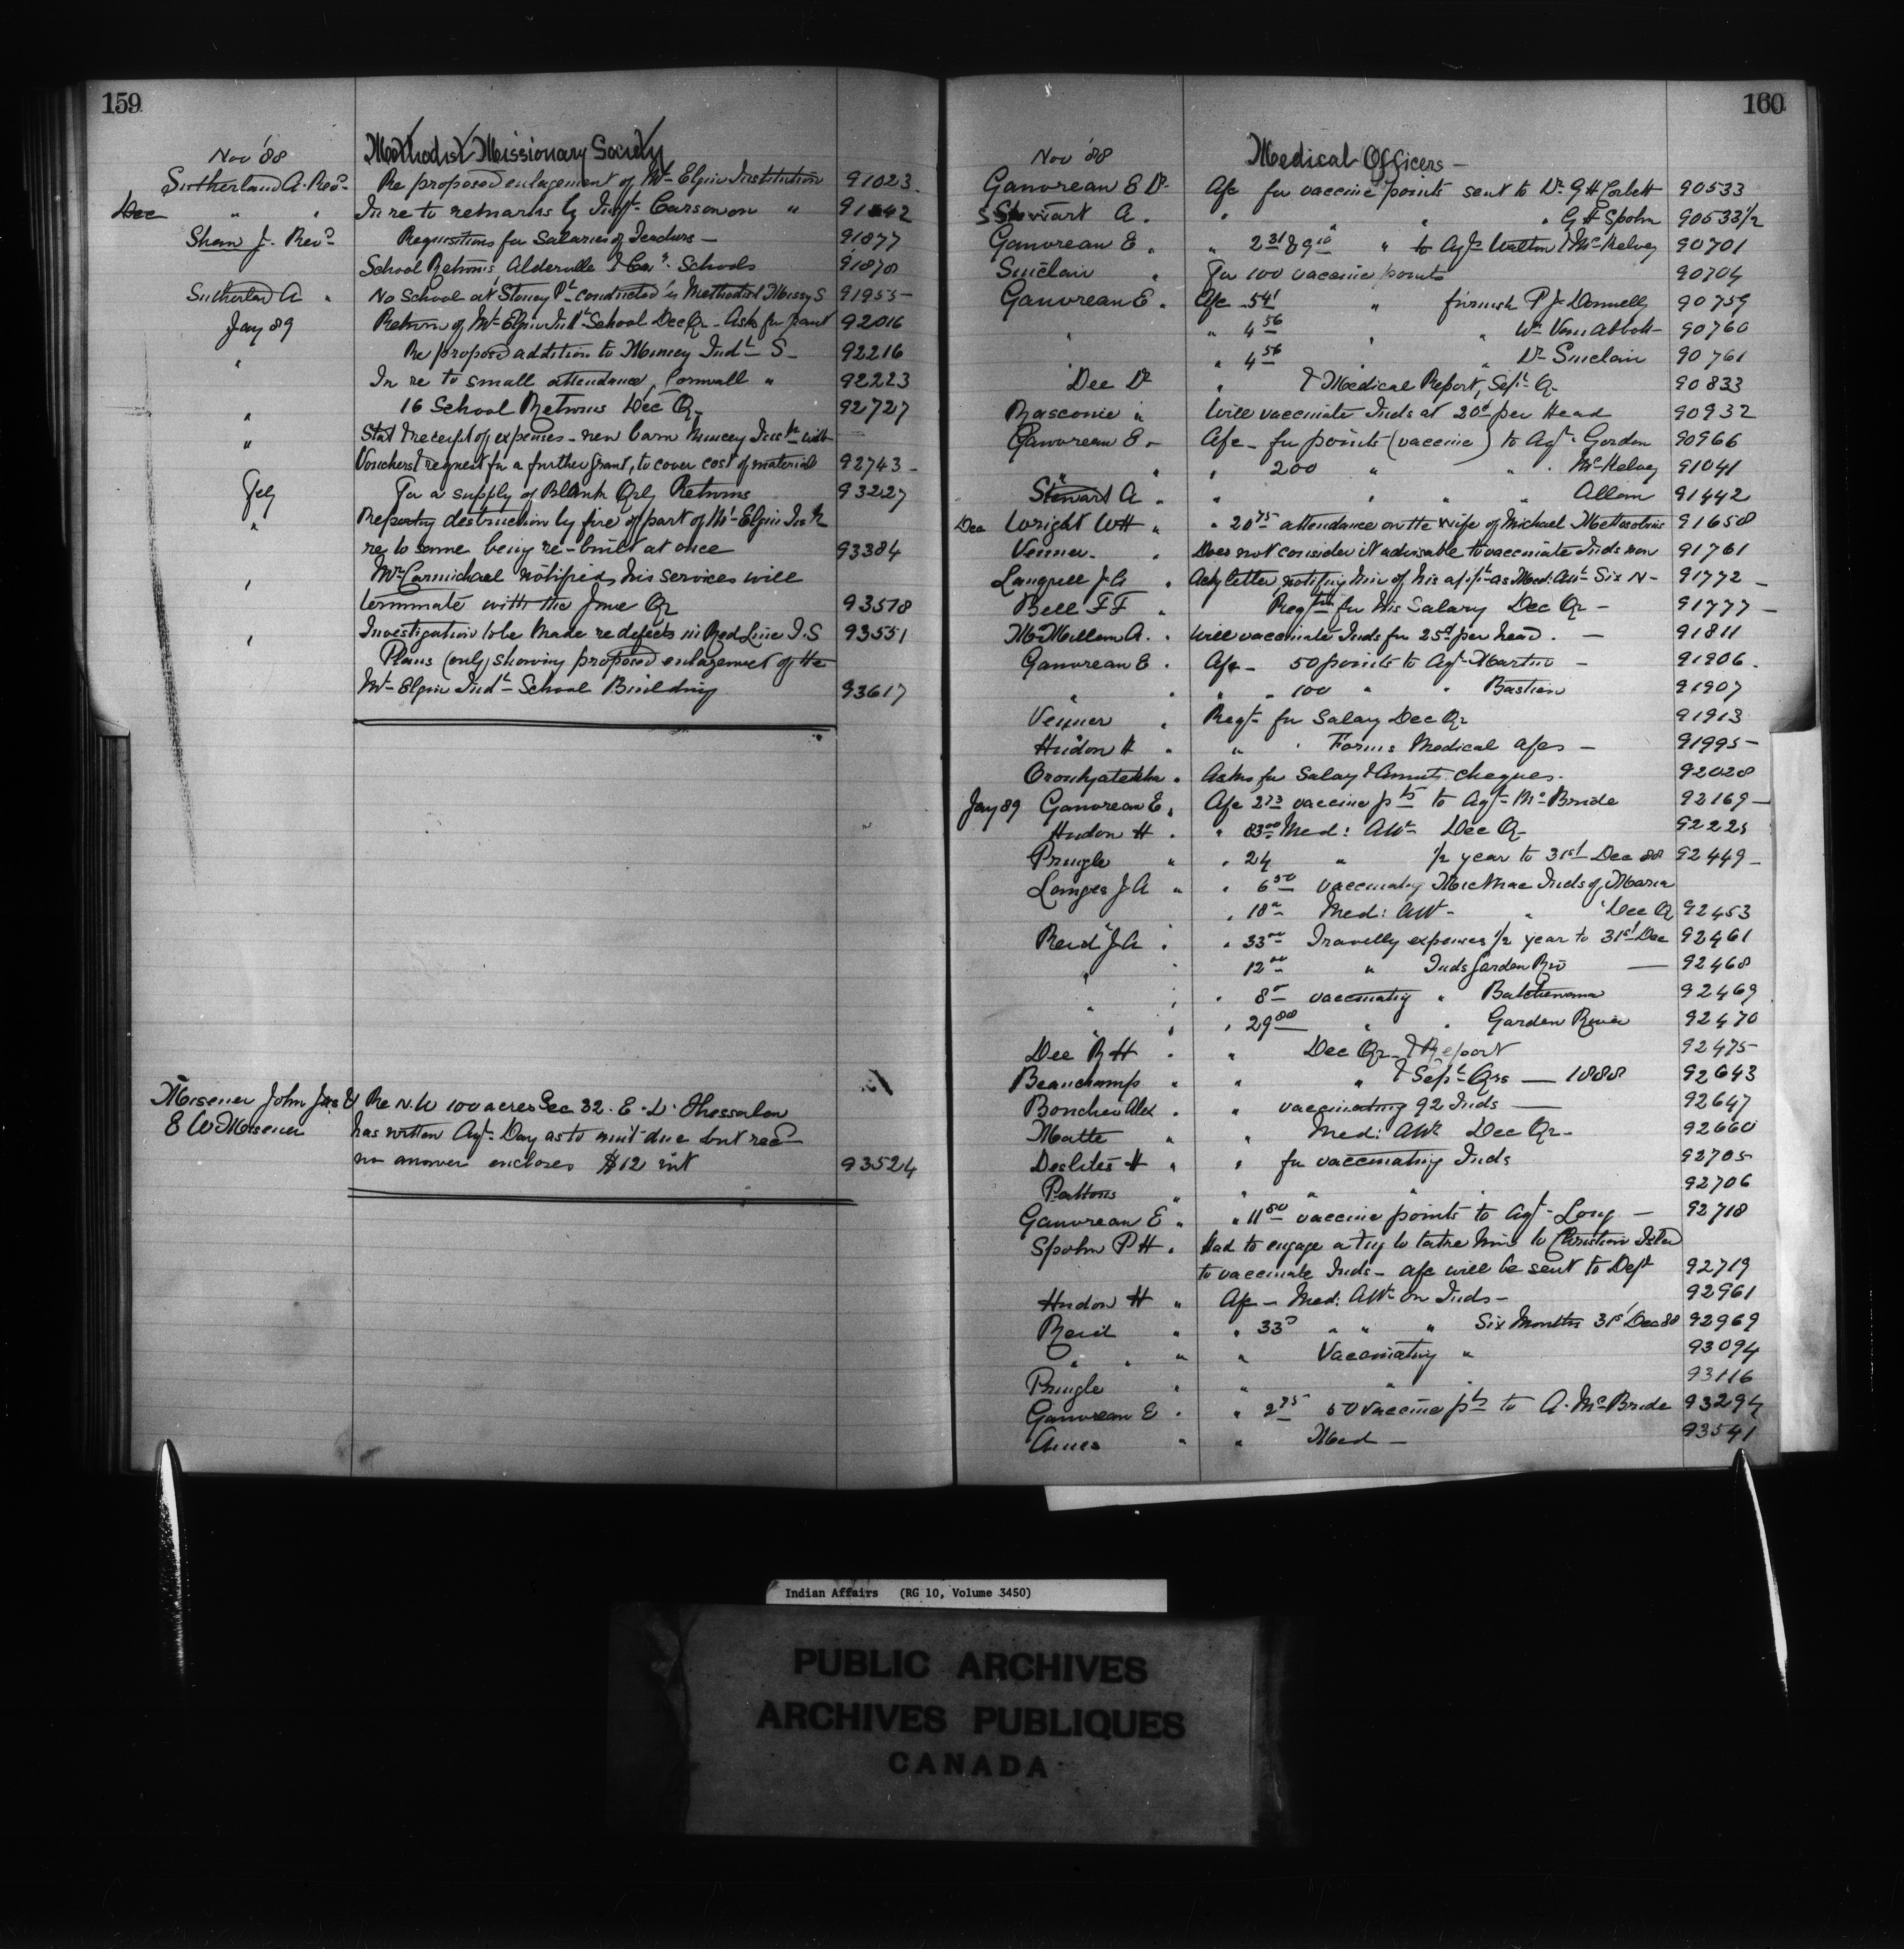 159
Nov '88 Methodist Missionary Society
Sutherland A. Revd Re proposed enlagement of Mt Elgin Institution 91023
Dec " " In re to remarks by Inspt. Carson on " 91242
Shaw J. Revd Requisitions for Salaries of Teachers — 91877
School Returns, Alderville & Schools 91878
Sutherland A " No School at Stoney Pt conducted by Methodist Missy S 91955
Jany 89 Return of Mt Elgin Indl School Dec Qr - Asks for grant 92016
" Re proposed addition to Muncey Indl S - 92216
In re to small attendance, Cornwall " 92223
" 16 School Returns Dec Qr 92727
" Stat & receipt of expenses - new barn Muncey Instn with
Vouchers & request for a further grant, to cover cost of material 92743 -
Feby For a supply of Blank Qrly Returns 93227
" Reporting destruction by fire of part of Mt Elgin Instn
re to same being re-built at once 93384
" Mr Carmichael notified his services will
terminate with the June Qr 93518
" Investigation to be made re defects in Red Line I.S 93551
Plans (only) showing proposed enlagement of the
Mt Elgin Indl School Building 93617
Misener John Jas & Re N.W 100 acres Sec 32. E. D. Thessalon
E W Misener has written Agt. Day as to amt due but recd
no answer encloses $12 int 93524
160
Nov '88 Medical Officers —
Gauvreau E Dr. A/c for vaccine points sent to Dr. G H Corbett 90533
Stewart A. " " " " G H Spohn 90533½
Gauvreau E. " 2 31 & 9 10 " to Agts Walton & McKelvey 90701
Sinclair " For 100 vaccine points 90704
Gauvreau E. A/c 541 " furnish P J Donnelly 90759
" " 4 56 " " Wm Van Abbott 90760
" " 4 56 " " Dr Sinclair 90761
Dee Dr " & Medical Report, Sept Qr 90833
Rasconie " Will vaccinate Inds at 20c per Head 90932
Gauvreau E. A/c - for points (vaccine) to Agt. Gordon 90966
" " " 200 " " McKelvey 91041
Stewart A. " " " " Allan 91442
Dec Wright W H " " 20 75 attendance on the wife of Michael 91658
Venner. " Does not consider it advisable to vaccinate Inds now 91761
Langrill J A " Ackg letter notifying him of his appt as Med: Att Six N - 91772 -
Bell F F " Reqtn for his Salary Dec Qr - 91777 -
McMillan A. " Will vaccinate Inds for 25c per head. — 91811
Gauvreau E. A/c - 50 points to Agt Martin - 91906.
" " " " 100 " " Bastien 91907
Venner " Reqt for Salary Dec Qr 91913
Hudon H. " " Forms Medical a/cs - 91995 -
Oronhyatekha. Asks for Salary & Annuity cheques. 92028
Jany 89 Gauvreau E. A/c 2 73 vaccine pts to Agt McBride 92169 -
Hudon H. " 83 00 Med: Att Dec Qr 92225
Pringle " " 24 " ½ year to 31st Dec 88 92449 -
Langis J A " " 6 50 vaccinating Micmac Inds of Maria
" 18 " Med: Att - " Dec Q 92453
Reid J A " " 33 00 Travellg expenses ½ year to 31st Dec 92461
" " 12 00 " Inds Garden Riv — 92468
" " " 8 00 vaccinating " Batchewana 92469
" " " 29 88 " " Garden River 92470
Dee R H " " Dec Qr & Report 92475
Beauchamp " " " & Sept Qrs — 1888 92643
Boucher Alex " " vaccinating 92 Inds — 92647
Matte " " Med: Att Dec Qr - 92660
Deslites H " " for vaccinating Inds 92705
Pattons " " " " " 92706
Gauvreau E " " 11 80 vaccine points to Agt - Long — 92718
Spohn P H. Had to engage a tug to take him to Christian Isld
to vaccinate Inds - a/c will be sent to Dept 92719
Hudon H " A/c - Med: Att on Inds - 92961
Reid " " 33 " " " Six Months 31st Dec 88 92969
" " " " Vaccinating " 93094
Pringle " " " " 93116
Gauvreau E. " 2 75 50 vaccine pts to A. McBride 93294
" " Med — 93541
Indian Affairs (RG 10, Volume 3450)
PUBLIC ARCHIVES
ARCHIVES PUBLIQUES
CANADA